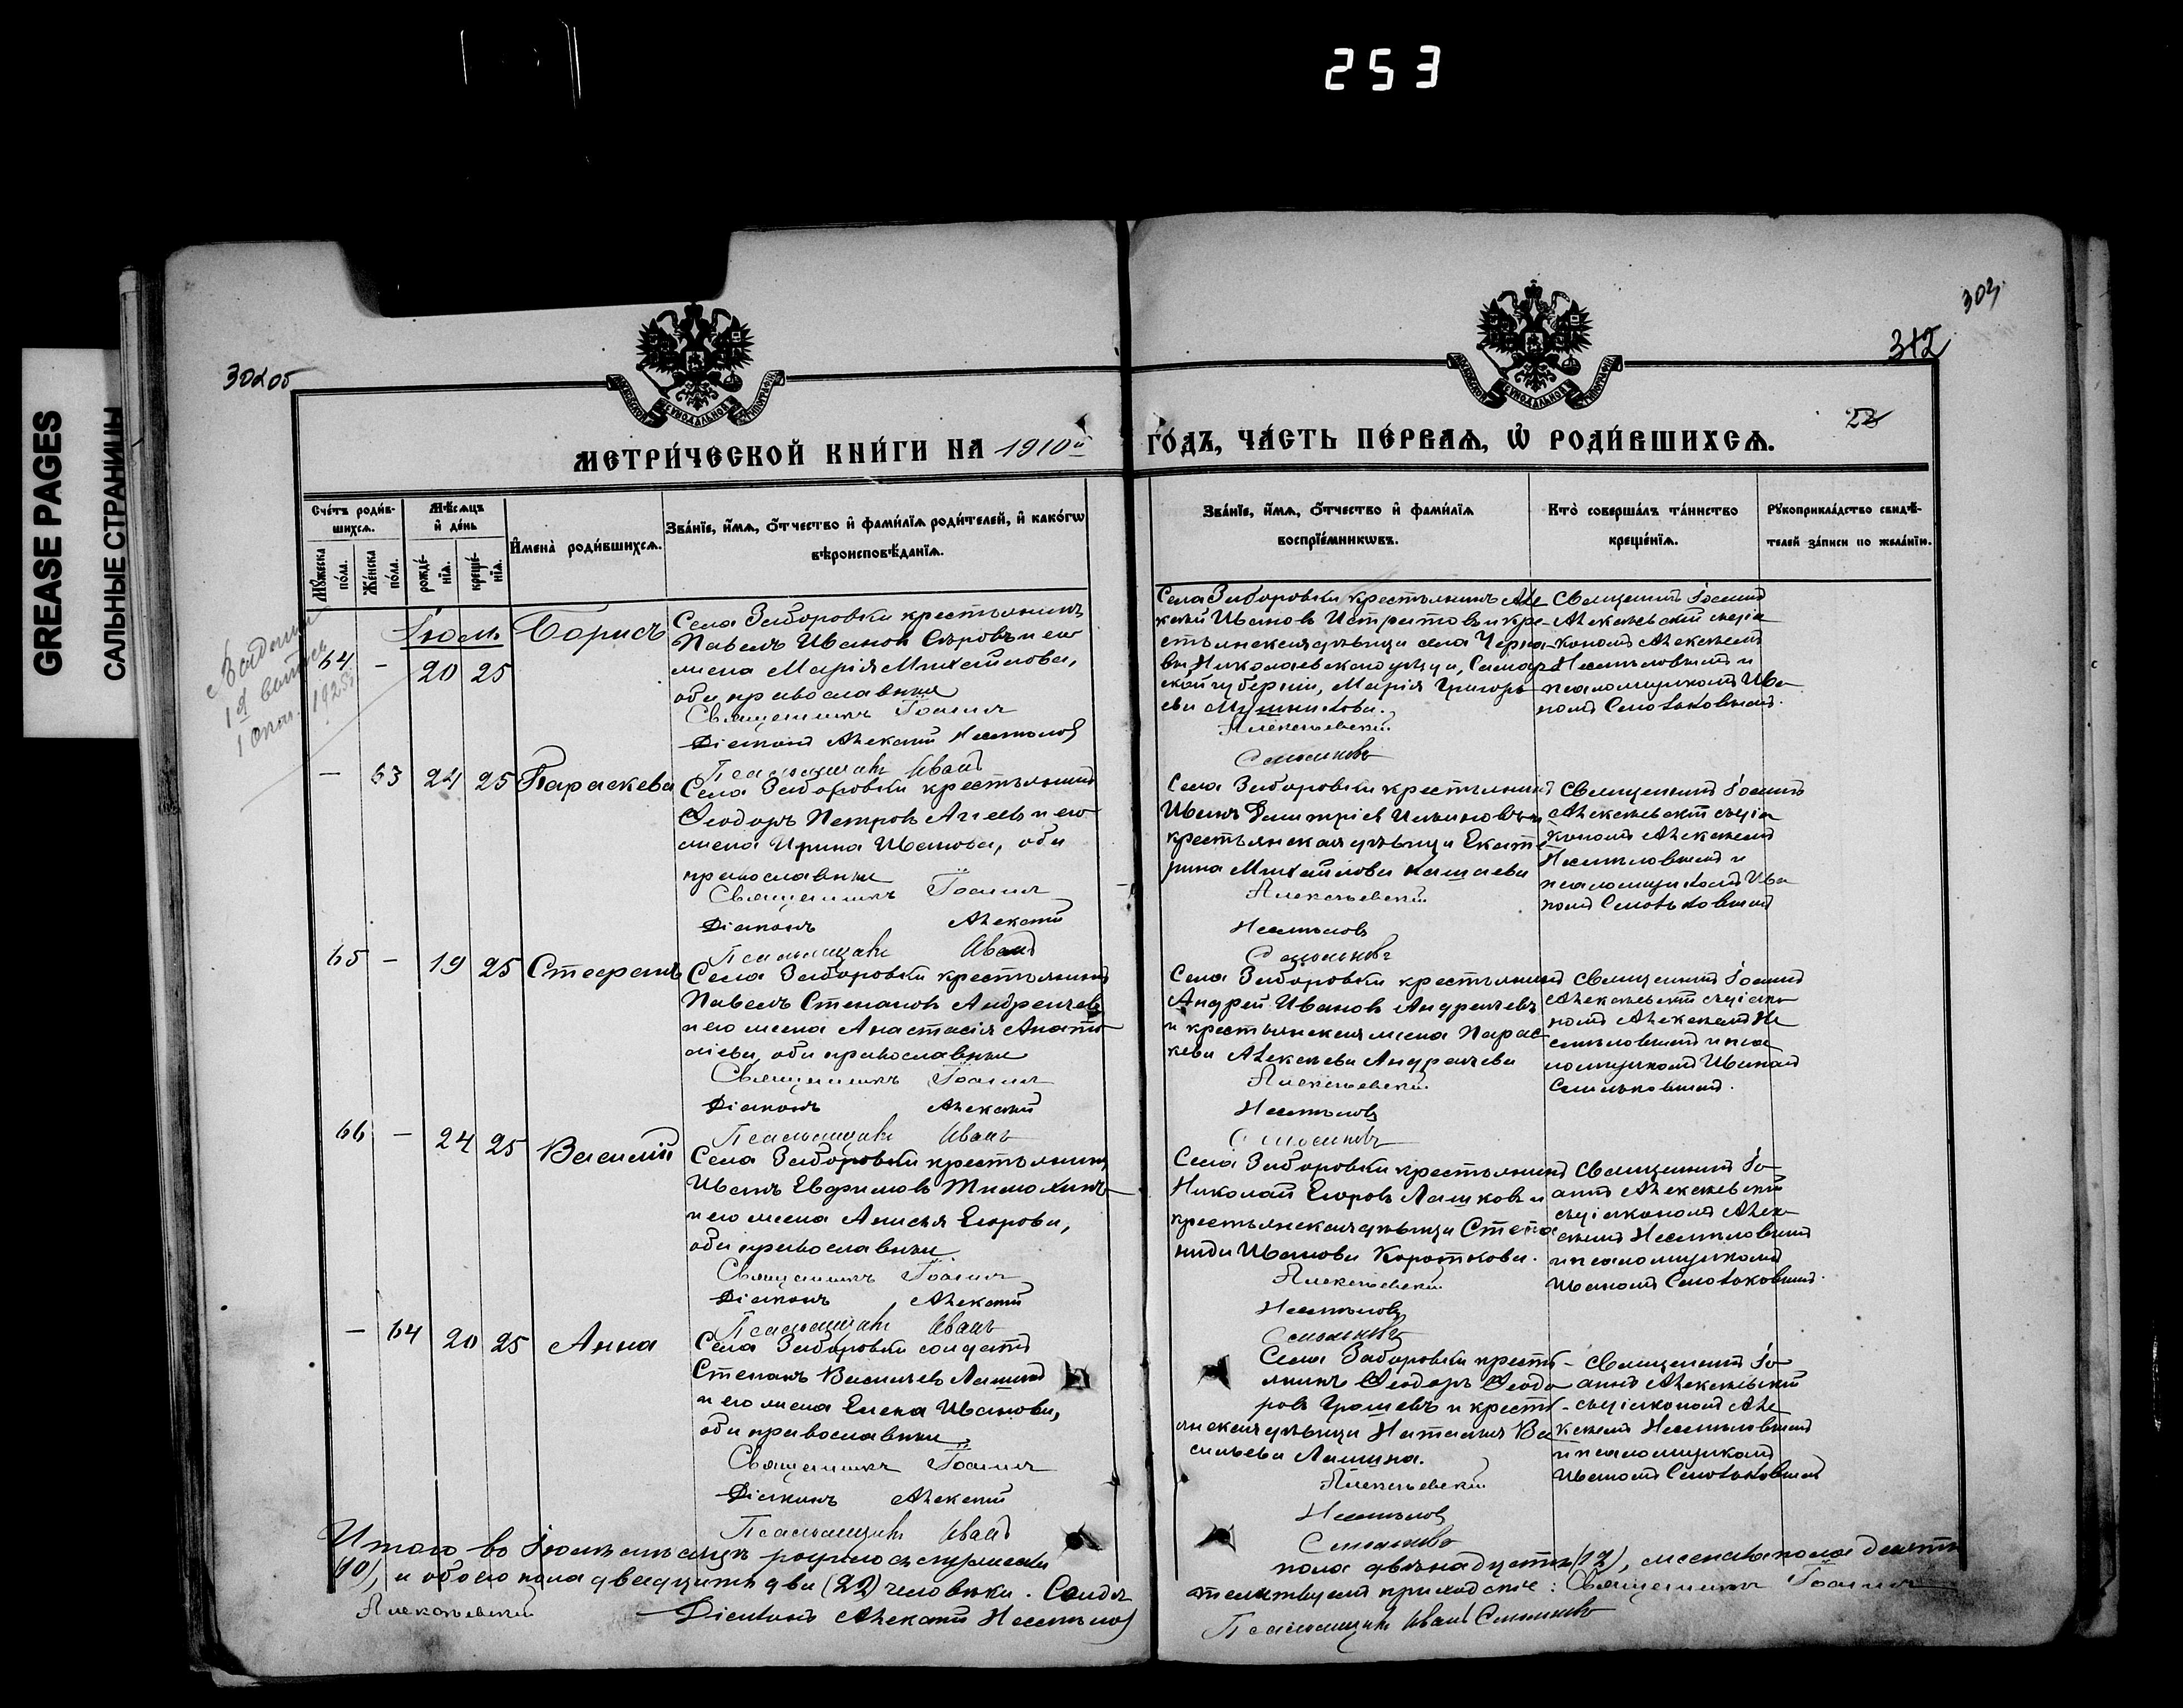 253
GREASE PAGES
САЛЬНЫЕ СТРАНИЦЫ
302об
303
312
23
МЕТРИ́ЧЕСКОЙ КНИ́ГИ НА 1910й ГО́ДЪ, ЧА́СТЬ ПЕ́РВАѦ, Ѡ҆ РОДИ́ВШИХСѦ.
Сче́тъ роди́в-
шихсѧ.
Мꙋжеска по́ла.
Же́нска по́ла.
Мѣ́сѧцъ
и҆ де́нь
рожде́-
нїѧ.
креще́-
нїѧ.
И҆мена̀ роди́вшихсѧ.
Зва́нїе, и҆́мѧ, ѻ҆́тчество и҆ фами́лїѧ роди́телей, и҆ како́гѡ
вѣроисповѣ́данїѧ.
Зва́нїе, и҆́мѧ, ѻ҆́тчество и҆ фами́лїѧ
воспрїе́мникѡвъ.
Кто̀ соверша́лъ та́инство
креще́нїѧ.
Рꙋкоприкла́дство свидѣ́-
телей за́писи по жела́нїю.
1925
Іюль
64 - 20 25 Борисъ
Села Заборовки крестьянинъ
Павелъ Ивановъ Сѣровъ и его
жена Марія Михайлова,
оба православные
Священникъ Іоаннъ Алексѣевскій
Діаконъ Алексій Несмѣловъ
Псаломщикъ Иванъ Смольковъ
Села Заборовки крестьянинъ Але
ксѣй Ивановъ Истратовъ и кре-
стьянская дѣвица села Черна-
вы Николаевскаго уѣзда, Самар
ской губерніи, Марія Григорь
ева
Священникъ Іоаннъ
Алексѣевскій съ діа
кономъ Алексѣемъ
Несмѣловымъ и
псаломщикомъ Ива
номъ Смольковымъ.
- 63 24 25 Параскева
Села Заборовки крестьянинъ
Ѳеодоръ Петровъ Агѣевъ и его
жена Ирина Иванова, оба
православные
Священникъ Іоаннъ Алексѣевскій
Діаконъ Алексій Несмѣловъ
Псаломщикъ Иванъ Смольковъ
Села Заборовки крестьянинъ
Иванъ Димитріевъ и
крестьянская дѣвица Екате
рина Михайлова
Священникъ Іоаннъ
Алексѣевскій съ діа
кономъ Алексѣемъ
Несмѣловымъ и
псаломщикомъ Ива
номъ Смольковымъ
65 - 19 25 Стефанъ
Села Заборовки крестьянинъ
Павелъ Степановъ Андреичевъ
и его жена Анастасія Анато
ліева, оба православные
Священникъ Іоаннъ Алексѣевскій
Діаконъ Алексій Несмѣловъ
Псаломщикъ Иванъ Смольковъ
Села Заборовки крестьянинъ
Андрей Ивановъ Андреичевъ
и крестьянская жена Парас
кева Алексѣева Андреичева
Священникъ Іоаннъ
Алексѣевскій съ діако
номъ Алексѣемъ Не
смѣловымъ и пса
ломщикомъ Иваномъ
Смольковымъ.
66 - 24 25 Василій
Села Заборовки крестьянинъ
Иванъ Евфимовъ Тимохинъ
и его жена Анисья Егорова,
оба православные
Священникъ Іоаннъ Алексѣевскій
Діаконъ Алексій Несмѣловъ
Псаломщикъ Иванъ Смольковъ
Села Заборовки крестьянинъ
Николай Егоровъ Лашковъ и
крестьянская дѣвица Степа
нида Иванова Короткова.
Священникъ Іо
аннъ Алексѣевскій
съ діакономъ Алек
сѣемъ Несмѣловымъ
и псаломщикомъ
Иваномъ Смольковымъ.
- 64 20 25 Анна
Села Заборовки солдатъ
Степанъ Васильевъ Лашинъ
и его жена Елена Иванова,
оба православные
Священникъ Іоаннъ Алексѣевскій
Діаконъ Алексій Несмѣловъ
Псаломщикъ Иванъ Смольковъ
Села Заборовки кресть-
янинъ Ѳеодоръ Ѳеодо
ровъ Грошевъ и кресть-
янская дѣвица Наталія Ва
сильева Лашина.
Священникъ Іо
аннъ Алексѣевскій
съ діакономъ Але
ксѣемъ Несмѣловымъ
и псаломщикомъ
Иваномъ Смольковымъ
Итого въ Іюлѣ мѣсяцѣ родилось мужеска пола двѣнадцать (12), женска пола десять
(10), и обоего пола двадцать два (22) человѣка. Свидѣтельствуютъ причтъ: Священникъ Іоаннъ
Алексѣевскій Діаконъ Алексій Несмѣловъ Псаломщикъ Иванъ Смольковъ